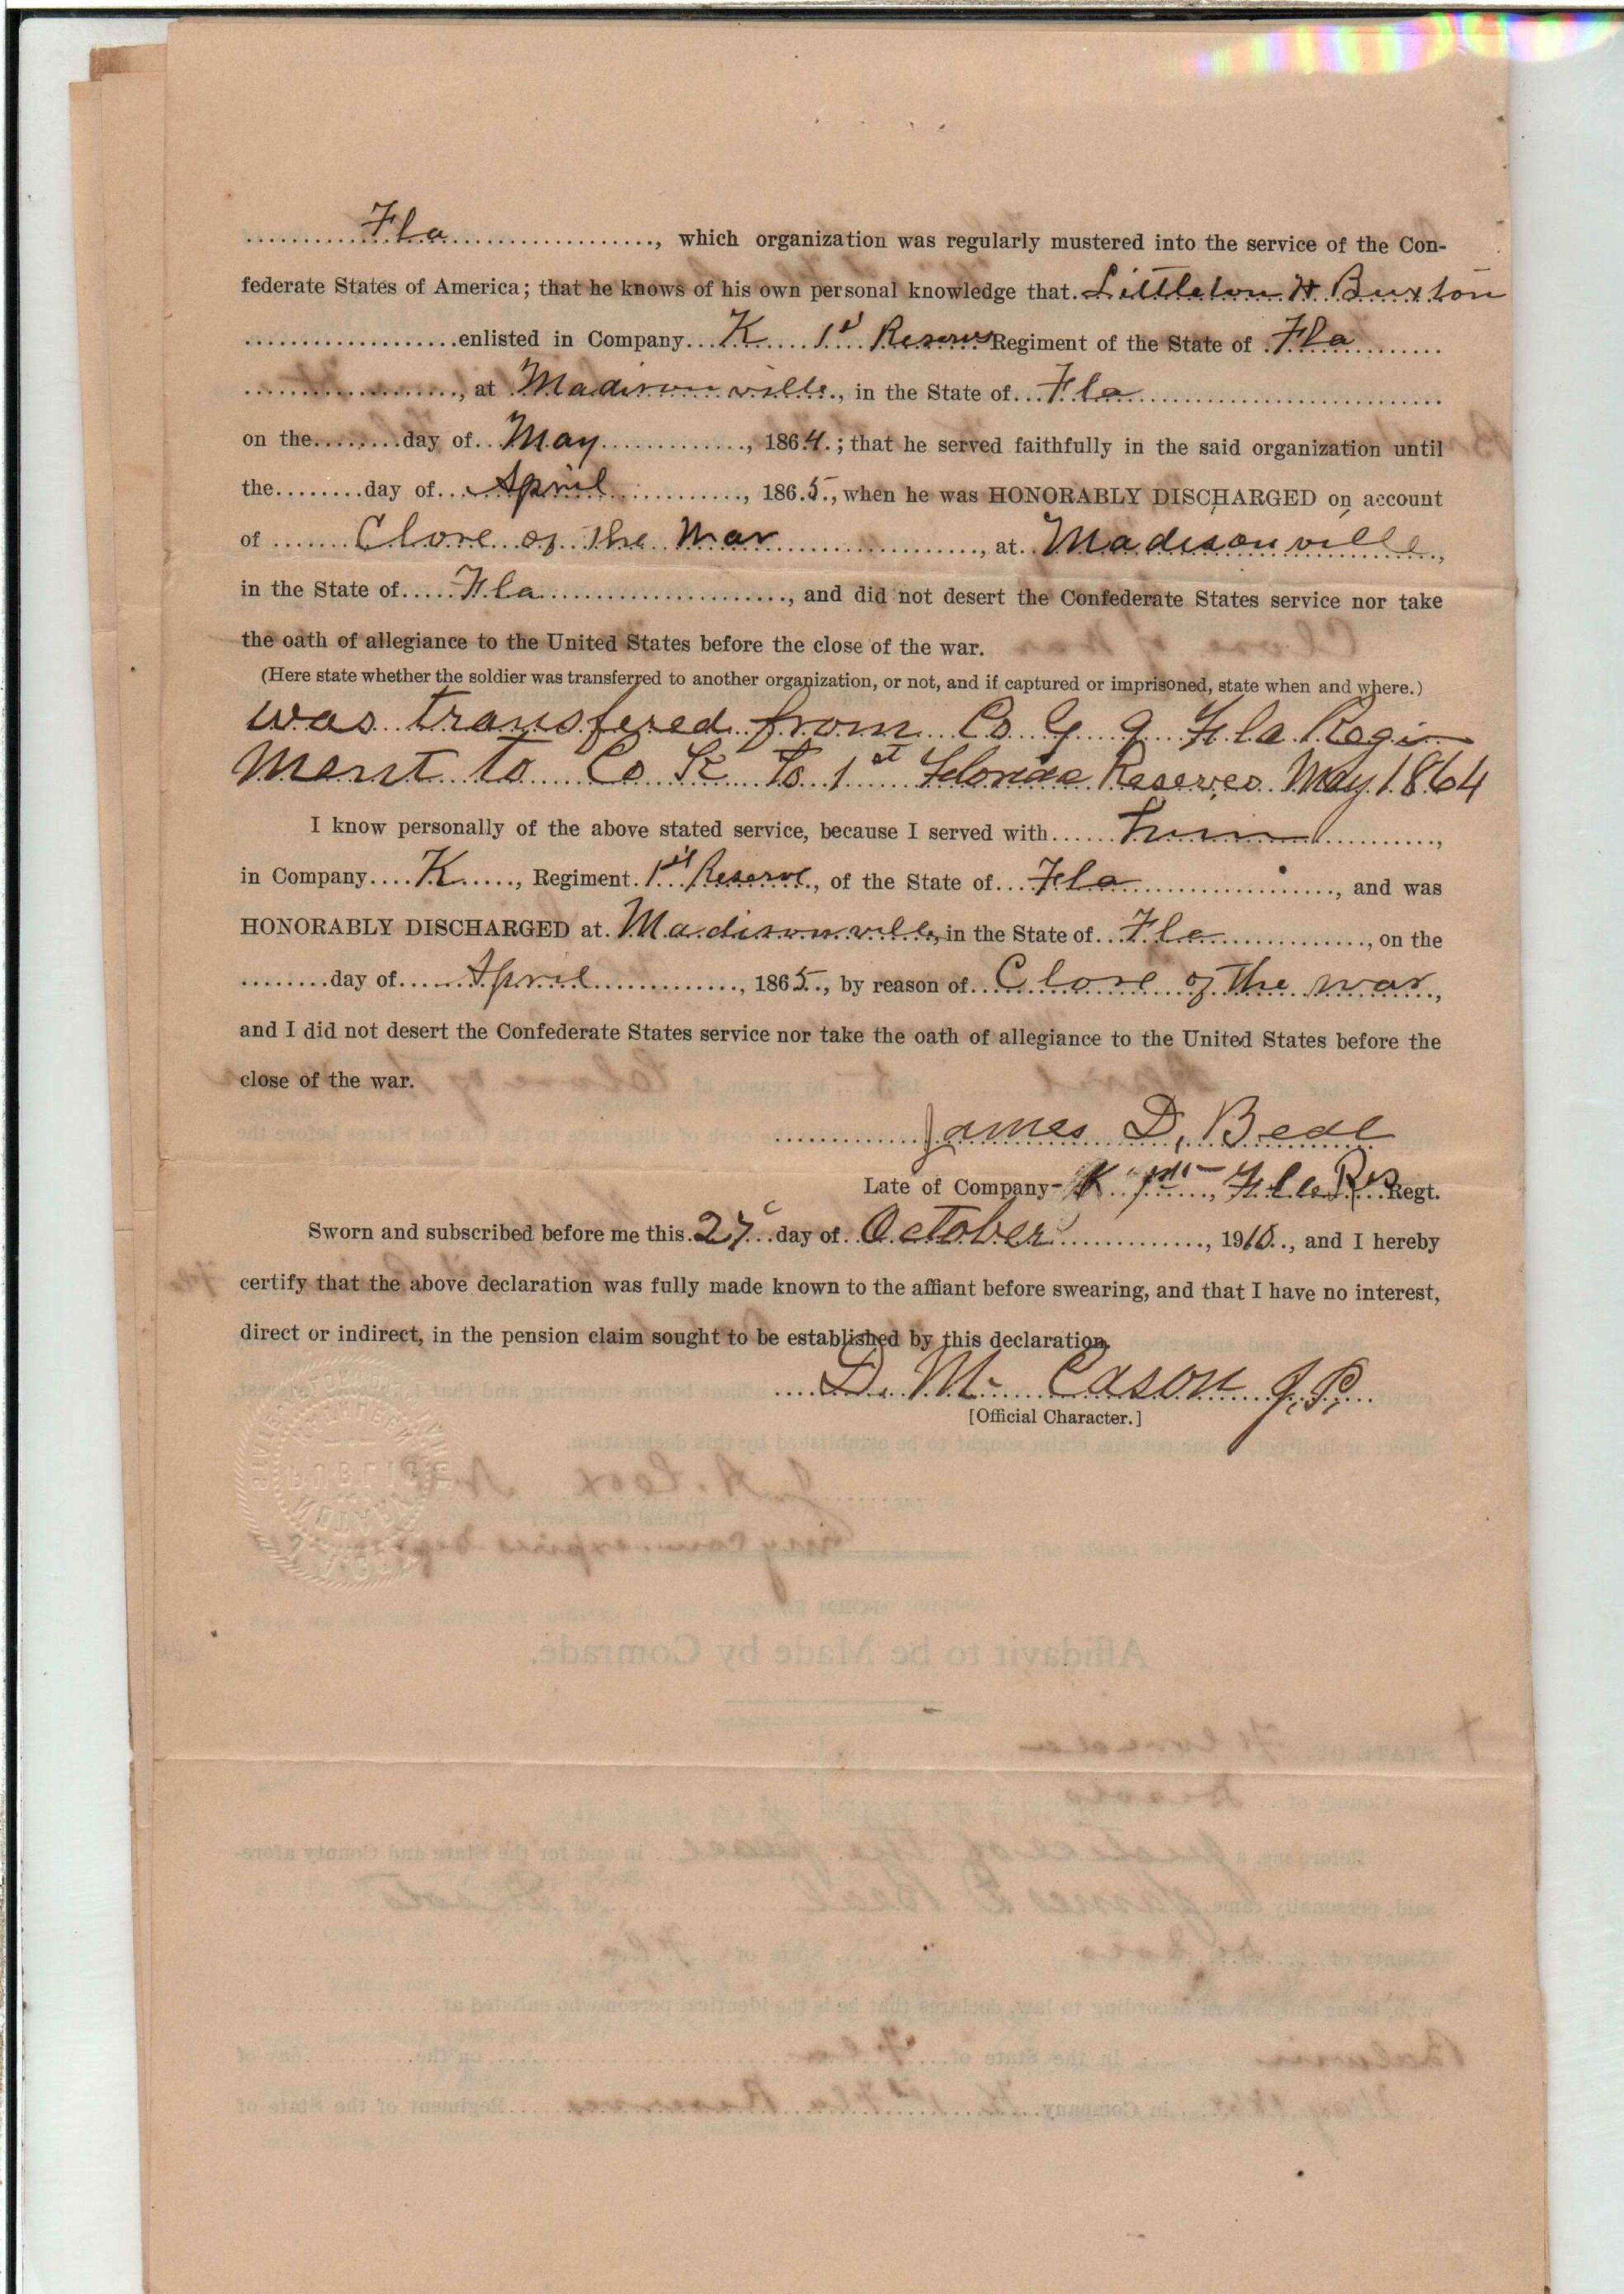 Fla, which organization was regularly mustered into the service of the Con-
federate States of America; that he knows of his own personal knowledge that Littleton H Buxton
enlisted in Company K 1st Reserve Regiment of the State of Fla
, at Madisonville, in the State of Fla
on the........day of May, 1864; that he served faithfully in the said organization until
the........day of April, 1865, when he was HONORABLY DISCHARGED on account
of Close of the War, at Madisonville,
in the State of Fla, and did not desert the Confederate States service nor take
the oath of allegiance to the United States before the close of the war.
(Here state whether the soldier was transferred to another organization, or not, and if captured or imprisoned, state when and where.)
was transfered from Co G 9 Fla Regi
ment to Co K To 1st Florida Reserves May 1864
I know personally of the above stated service, because I served with him,
in Company K, Regiment 1st Reserve, of the State of Fla, and was
HONORABLY DISCHARGED at Madisonville, in the State of Fla, on the
........day of April, 1865, by reason of Close of The war,
and I did not desert the Confederate States service nor take the oath of allegiance to the United States before the
close of the war.
James D. Beal
Late of Company K 1st Fla Res Regt.
Sworn and subscribed before me this 27 day of October, 1910, and I hereby
certify that the above declaration was fully made known to the affiant before swearing, and that I have no interest,
direct or indirect, in the pension claim sought to be established by this declaration.
D. M. Cason J.P.
[Official Character.]